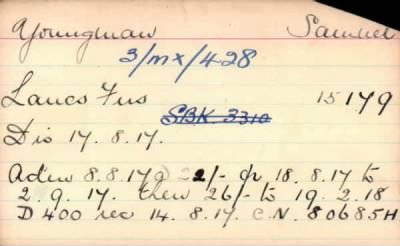 Youngman Samuel
3/MX/428
Lancs Fus 15179
SBK 3310
Dis 17.8.17.
Adw 8.8.17 @ 22/- fr 18.8.17 to
2.9.17. then 26/- to 19.2.18
D 400 rec 14.8.17. C.N. 80685H